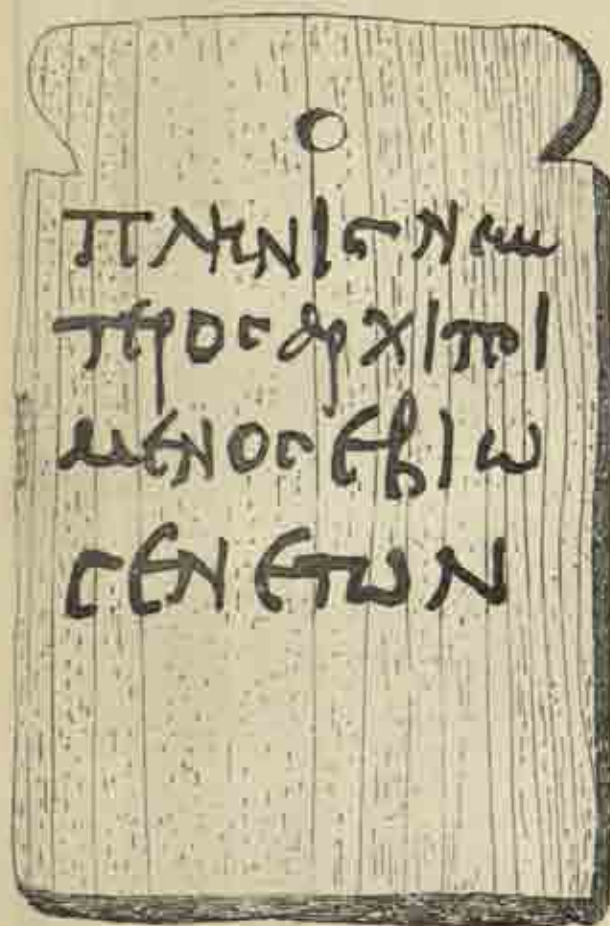 ΠΛΗΝΙϹΝΕω
ΤΕΡΟϹΑΡΧΙΠΟΙ
ΜΕΝΟϹΕΒΙω
ϹΕΝΕΤωΝ